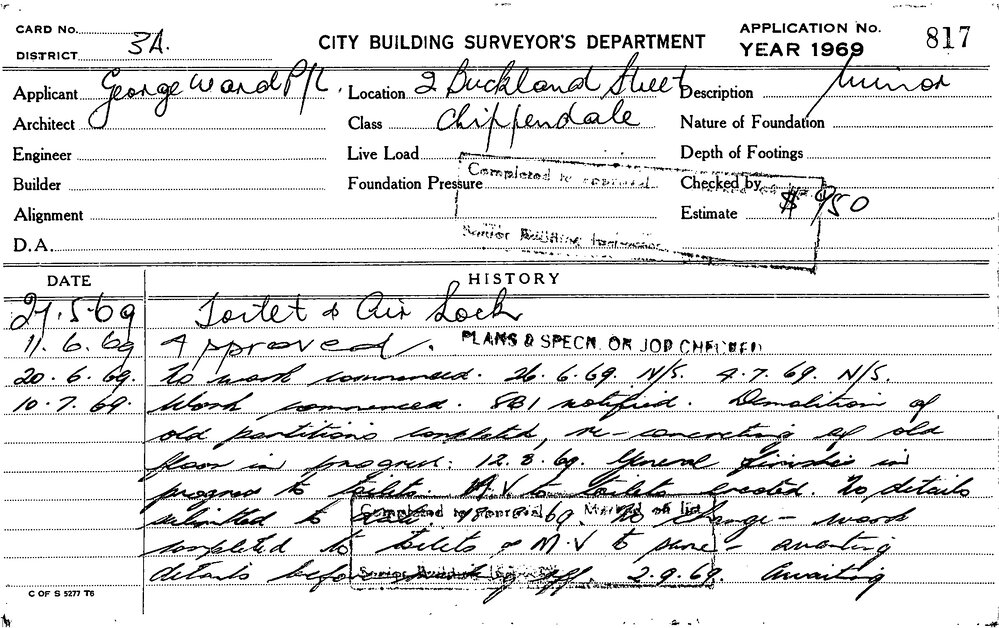 CARD No.
DISTRICT 3A.
CITY BUILDING SURVEYOR'S DEPARTMENT
APPLICATION No. 817
YEAR 1969
Applicant George Ward P/L. Location 2 Buckland Street Description Minor
Architect Class Chippendale Nature of Foundation
Engineer Live Load Depth of Footings
Builder Foundation Pressure Checked by
Completed to approval
Alignment Estimate $ 950
D.A.
Senior Building Inspector
DATE HISTORY
27.5.69 Toilet & Air Lock
11.6.69 Approved. PLANS & SPECN. ON JOB CHECKED
20.6.69. No work commenced. 26.6.69. N/S. 4.7.69. N/S.
10.7.69. Work commenced. SBI notified. Demolition of
old partitions completed, re-concreting of old
floor in progress: 12.8.69. General finishes in
progress to toilets. M.V to toilets erected. No details
submitted to date. 69. No change - work
Completed to approval Marked off list
completed to toilets & M.V to same - awaiting
details before off. 2.9.69. Awaiting
Senior Building
C OF S 5277 T6